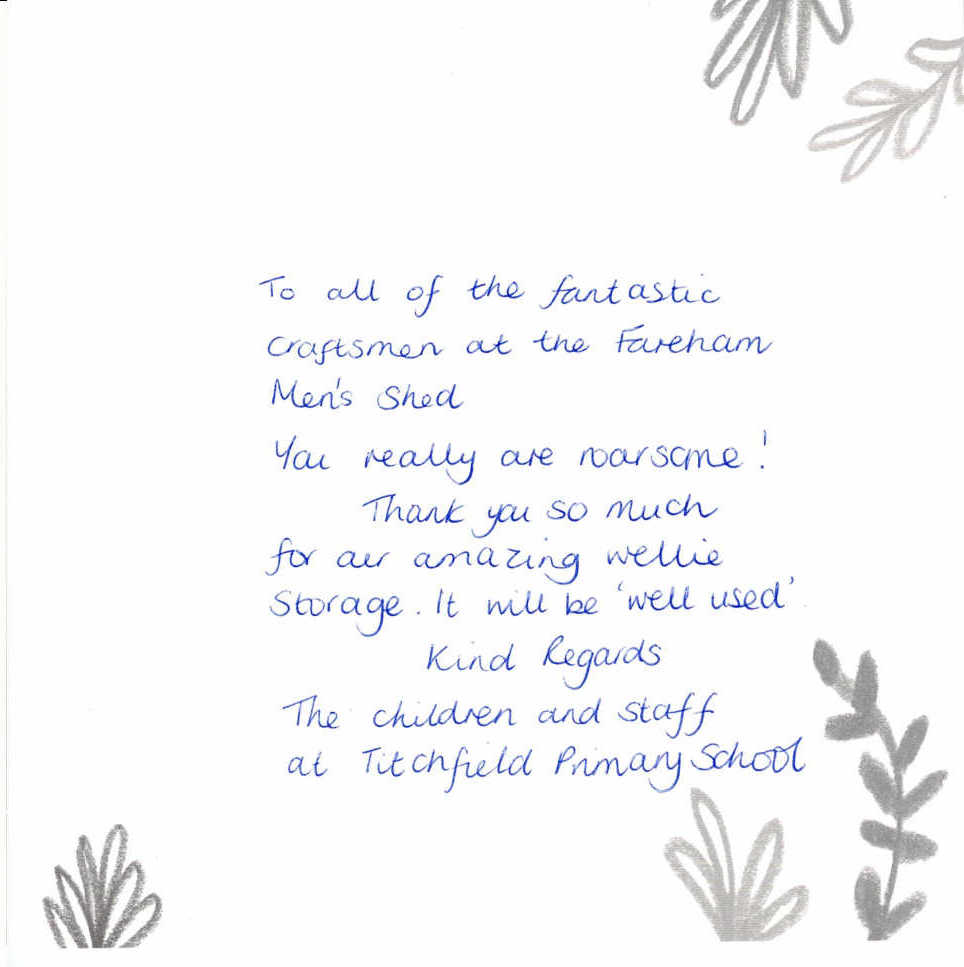 To all of the fantastic
craftsmen at the Fareham
Men's Shed
You really are roarsome!
Thank you so much
for our amazing wellie
storage. It will be 'well used'
Kind Regards
The children and staff
at Titchfield Primary School